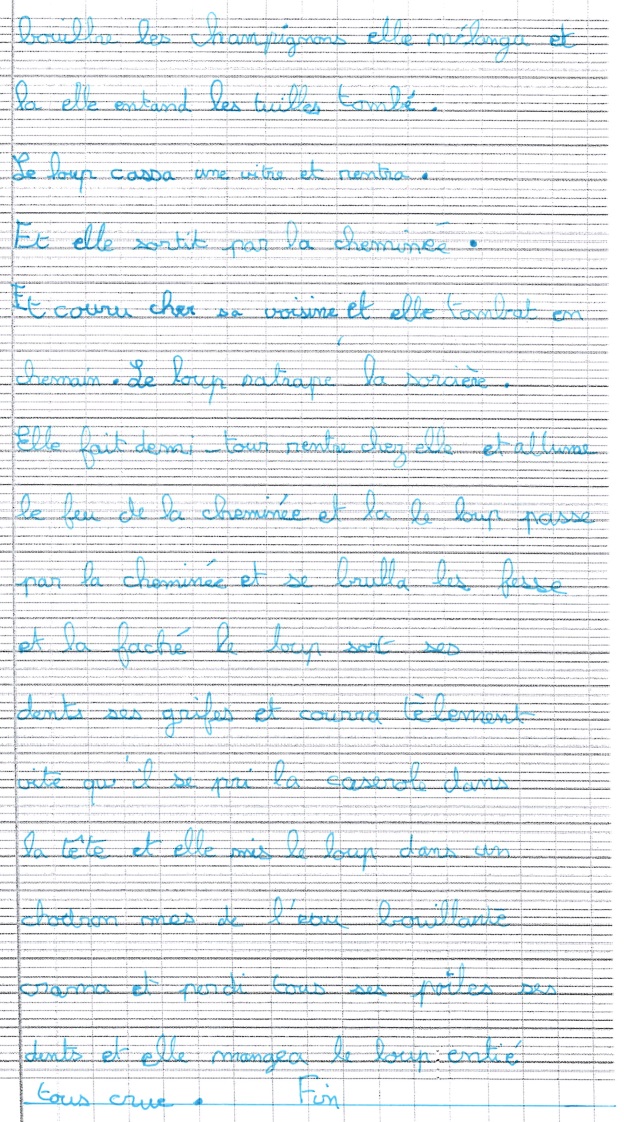 bouillir les champignons elle mélanga et
la elle entand les tuilles tombé.
Le loup cassa une vitre et rentra.
Et elle sortit par la cheminée.
Et couru cher sa voisine et elle tombat en
chemain. Le loup ratrape la sorcière.
Elle fait demi-tour rentre chez elle et allume
le feu de la cheminée et la le loup passe
par la cheminée et se brulla les fesse
et la faché le loup sort ses
dents ses grifes et courra tèlement
vite qu'il se pri la caserole dans
la tête et elle mis le loup dans un
chodron mes de l'eau bouillante
crama et perdi tous ses poiles ses
dents et elle mangea le loup entié
tous crue. Fin